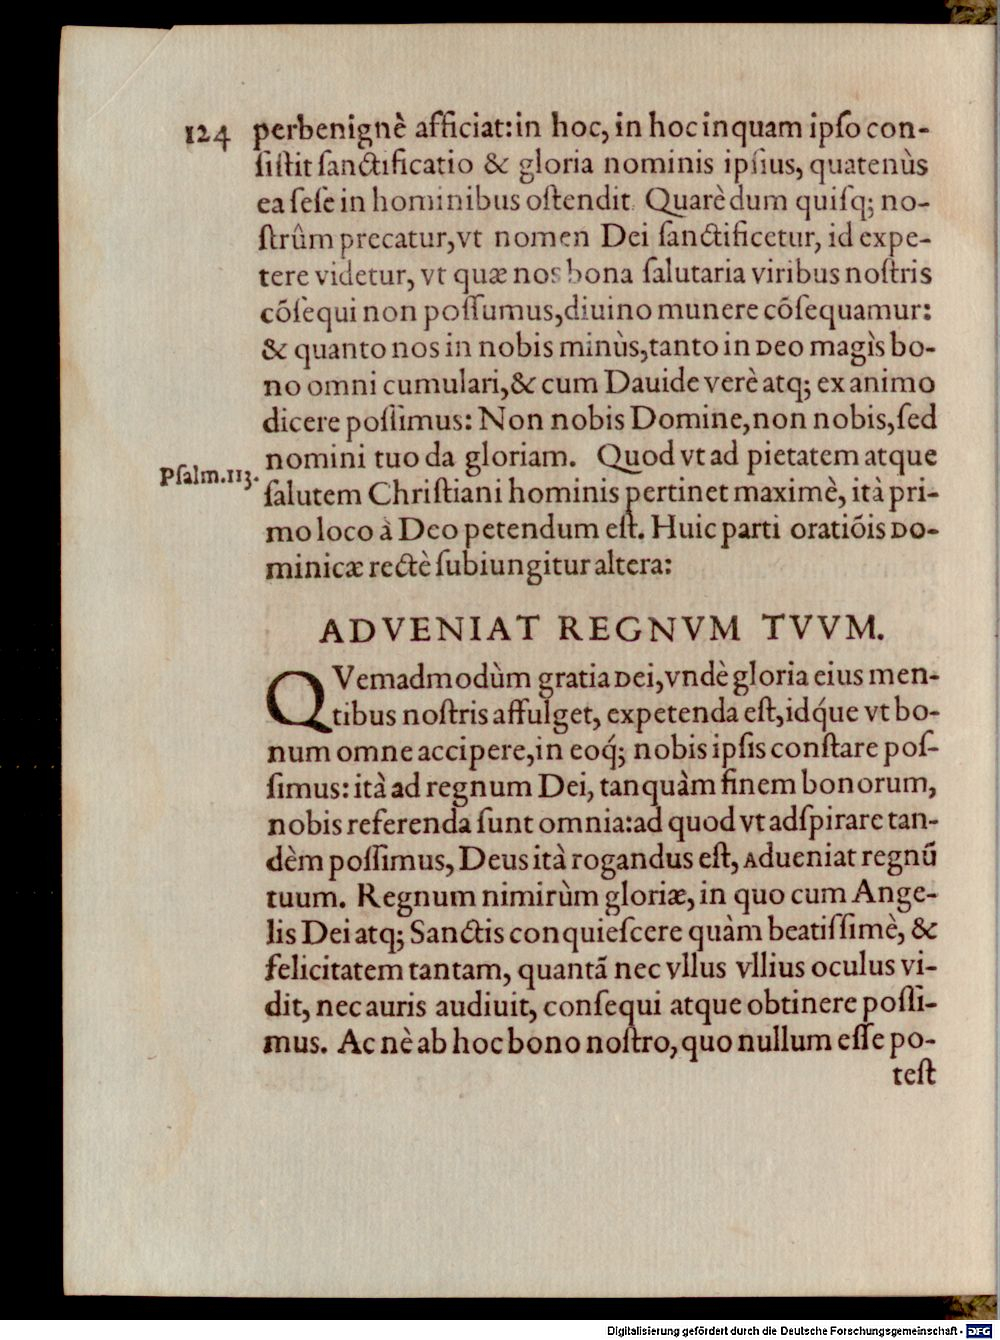 124 perbenignè afficiat:in hoc, in hoc inquam ipſo con-
ſiſtit ſanctificatio & gloria nominis ipſius, quatenùs
ea ſeſe in hominibus oſtendit. Quarè dum quiſq; no-
ſtrûm precatur,vt nomen Dei ſanctificetur, id expe-
tere videtur, vt quæ nos bona ſalutaria viribus noſtris
cõſequi non poſſumus,diuino munere cõſequamur:
& quanto nos in nobis minùs,tanto in Deo magìs bo-
no omni cumulari,& cum Dauide verè atq; ex animo
dicere poſſimus: Non nobis Domine,non nobis,ſed
nomini tuo da gloriam. Quod vt ad pietatem atque
Pſalm.113.
ſalutem Chriſtiani hominis pertinet maximè, ità pri-
mo loco à Deo petendum eſt. Huic parti oratiõis Do-
minicæ rectè ſubiungitur altera:
ADVENIAT REGNVM TVVM.
QVemadmodùm gratia Dei,vndè gloria eius men-
tibus noſtris affulget, expetenda eſt,idq́ue vt bo-
num omne accipere,in eoq́; nobis ipſis conſtare poſ-
ſimus: ità ad regnum Dei, tanquàm finem bonorum,
nobis referenda ſunt omnia:ad quod vt adſpirare tan-
dèm poſſimus, Deus ità rogandus eſt, Adueniat regnũ
tuum. Regnum nimirùm gloriæ, in quo cum Ange-
lis Dei atq; Sanctis conquieſcere quàm beatiſſimè, &
felicitatem tantam, quantã nec vllus vllius oculus vi-
dit, nec auris audiuit, conſequi atque obtinere poſſi-
mus. Ac nè ab hoc bono noſtro, quo nullum eſſe po-
teſt
Digitalisierung gefördert durch die Deutsche Forschungsgemeinschaft - DFG